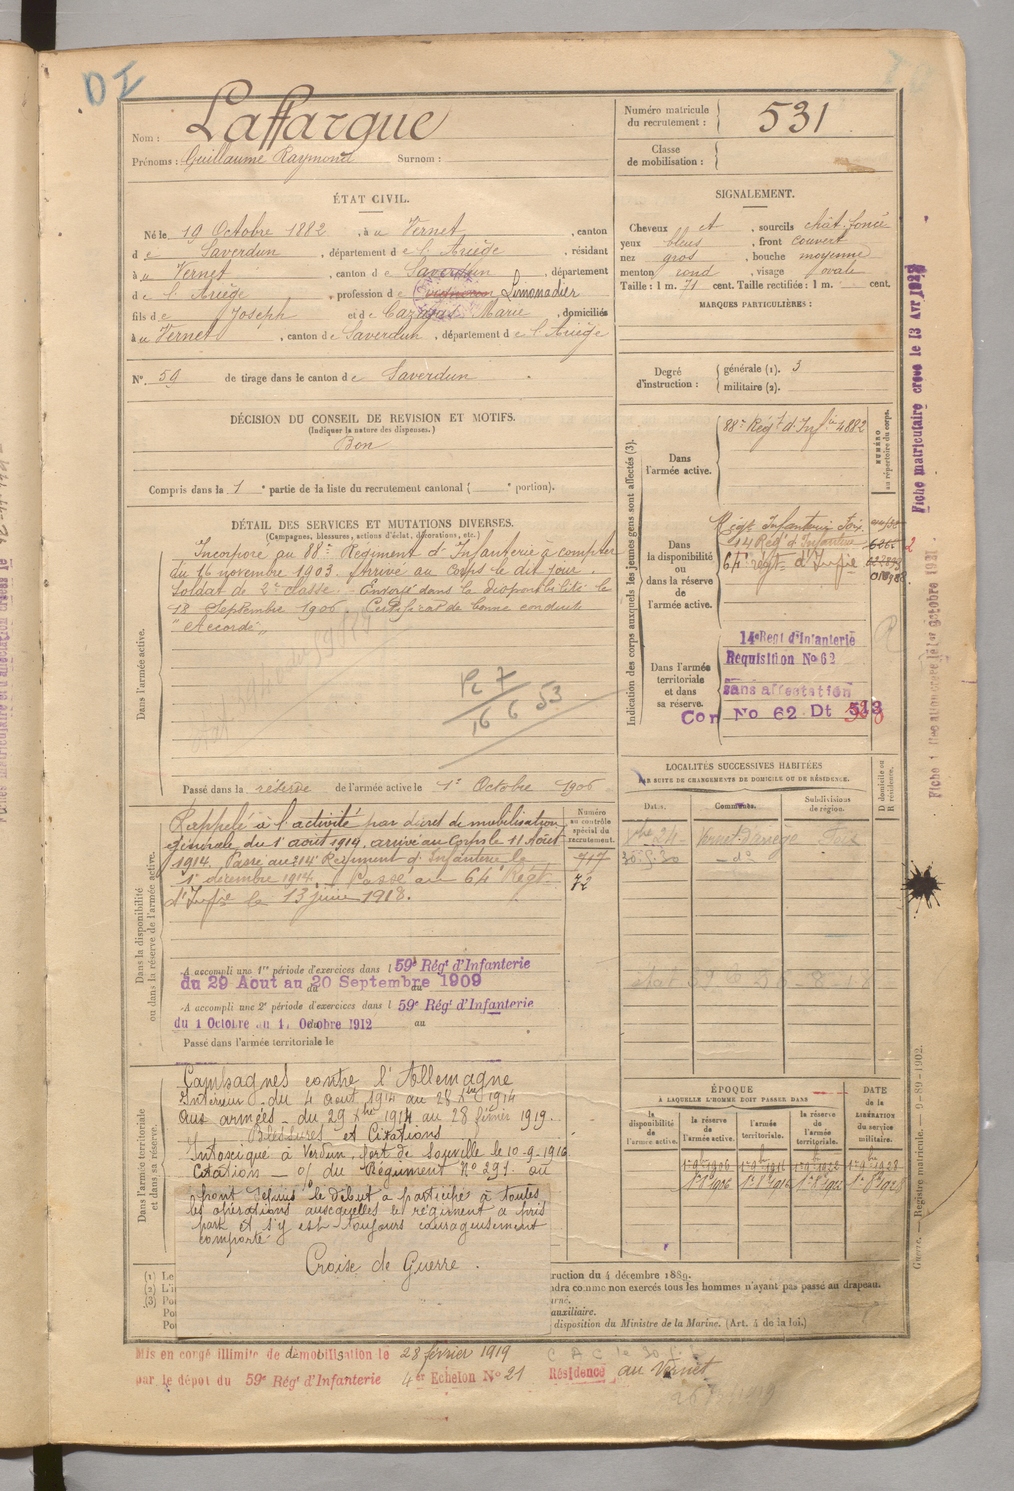 DI
Nom : Laffargue
Prénoms : Guillaume Raymond Surnom :
Numéro matricule du recrutement : 531
Classe de mobilisation :
ÉTAT CIVIL.
Né le 19 Octobre 1882, à u Vernet, canton
d e Saverdun, département de l'Ariège, résidant
à u Vernet, canton d e Saverdun, département
d e l'Ariège, profession d e Limonadier
fils d e Joseph et d e Cazajas Marie, domiciliés
à u Vernet, canton d e Saverdun, département d e l'Ariège
N° 59 de tirage dans le canton d e Saverdun.
DÉCISION DU CONSEIL DE REVISION ET MOTIFS.
(Indiquer la nature des dispenses.)
Bon
Compris dans la 1e partie de la liste du recrutement cantonal ( e portion).
SIGNALEMENT.
Cheveux et, sourcils chât. foncé
yeux bleus, front couvert
nez gros, bouche moyenne
menton rond, visage ovale
Taille : 1 m. 71 cent. Taille rectifiée : 1 m. cent.
MARQUES PARTICULIÈRES :
Degré d'instruction : générale (1). 3
militaire (2).
DÉTAIL DES SERVICES ET MUTATIONS DIVERSES.
(Campagnes, blessures, actions d'éclat, décorations, etc.)
Dans l'armée active.
Incorporé au 88e Régiment d'Infanterie à compter
du 16 novembre 1903. Arrivé au Corps le dit jour.
Soldat de 2e classe. Envoyé dans la disponibilité le
18 Septembre 1906. Certificat de bonne conduite
"Accordé"
16 6 53
Passé dans la réserve de l'armée active le 1er Octobre 1906
Indication des corps auxquels les jeunes gens sont affectés (3).
NUMÉRO au répertoire du corps.
Dans l'armée active.
88e Régt d'Inf ie 4882
Dans la disponibilité ou dans la réserve de l'armée active.
Régt Infanterie Foix
14 Rég t d'Infanterie
64e régt d'Infie
Dans l'armée territoriale et dans sa réserve.
14e Regt d'Infanterie
Requisition No 62
sans affectation
Con No 62 Dt 513
Dans la disponibilité ou dans la réserve de l'armée active.
Numéro au contrôle spécial du recrutement.
Rappelé à l'activité par décret de mobilisation
générale du 1er août 1914, arrivé au Corps le 11 Août
1914. Passé au 214e Régiment d'Infanterie le
1er décembre 1914. Passé au 64e Régt
d'Infie le 13 juin 1918.
717
72
A accompli une 1re période d'exercices dans l 59e Régt d'Infanterie
du 29 Aout au 20 Septembre 1909
A accompli une 2e période d'exercices dans l 59e Régt d'Infanterie
du 1 Octobre au Octobre 1912 au
Passé dans l'armée territoriale le
LOCALITÉS SUCCESSIVES HABITÉES
PAR SUITE DE CHANGEMENTS DE DOMICILE OU DE RÉSIDENCE.
Dates. Communes. Subdivisions de région. D. domicile ou R. résidence.
Vernet d'Ariège Foix
30.5.30 — do
Dans l'armée territoriale et dans sa réserve.
Campagnes contre l'Allemagne
Intérieur du 4 août 1914 au 28 Xbre 1914
Aux armées du 29 Xbre 1914 au 28 février 1919.
Blessures et Citations
Intoxiqué à Verdun, fort de Souville le 10-9-1916
Citation — o/ du Régiment N° 291. au
front depuis le début a participé à toutes
les opérations auxquelles le régiment a pris
park et s'y est toujours courageusement
comporté.
Croise de Guerre.
ÉPOQUE
À LAQUELLE L'HOMME DOIT PASSER DANS
la disponibilité de l'armée active.
la réserve de l'armée active.
l'armée territoriale.
la réserve de l'armée territoriale.
DATE de la LIBÉRATION du service militaire.
(1) Le
(2) L'i
(3) Po
Po
Po
ruction du 4 décembre 1889.
dra comme non exercés tous les hommes n'ayant pas passé au drapeau.
auxiliaire.
disposition du Ministre de la Marine. (Art. 4 de la loi.)
Mis en congé illimité de démobilisation le 28 février 1919
par le dépôt du 59e Régt d'Infanterie 4er Echelon No 21 Résidence au Vernet
Fiche matriculaire creee le 13 Avr
Guerre. — Registre matricule. — 9-89-1902.